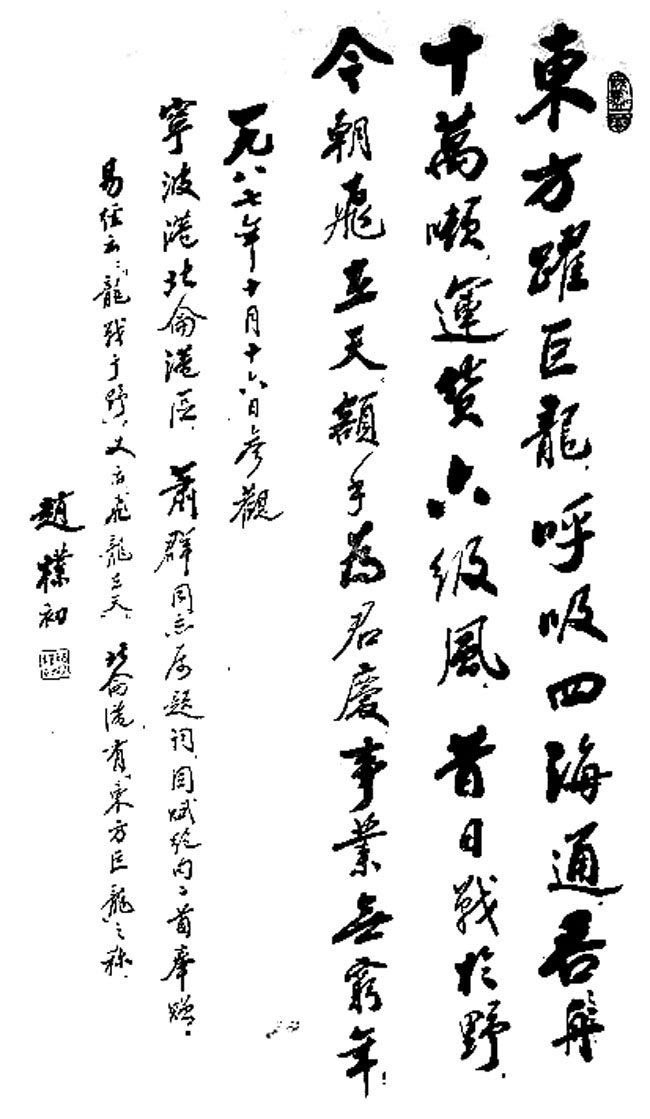 東方躍巨龍呼吸四海通吞船
十萬噸運貨六級風昔日戰於野
今朝飛在天額手為君慶事業無窮年
一九八七年十月十六日參觀
寧波港北侖港區蕭群同志屬題詞因賦絕句二首奉贈
易經云龍戰于野又云飛龍在天北侖港有東方巨龍之稱
趙樸初